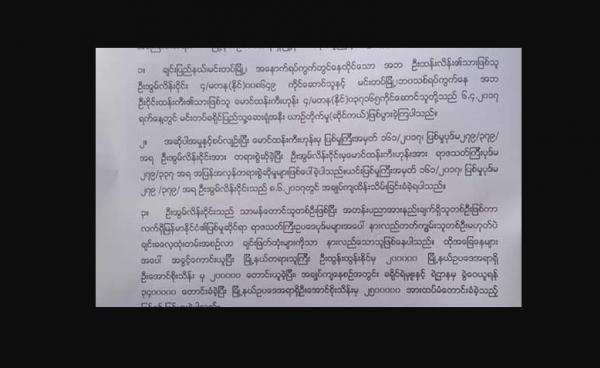 ၁။ ချင်းပြည်နယ်၊မင်းတပ်မြို့၊ အနောက်ရပ်ကွက်တွင်နေထိုင်သော အဘ ဦးထန်းလိန်း၏သားဖြစ်သူ
ဦးအွမ်လိန်ဝိုင်း ၄/မတန(နိုင်)၀၀၈၆၄၉ ကိုင်ဆောင်သူနှင့် မင်းတပ်မြို့၊ဘဝသစ်ရပ်ကွက်နေ အဘ
ဦးဝိုင်းထန်းကီး၏သားဖြစ်သူ မောင်ထန်းကီးဟုန်း ၄/မတန(နိုင်)၀၃၇၁၆၅ကိုင်ဆောင်သူတို့သည် ၆.၄.၂၀၁၇
ရက်နေ့တွင် မင်းတပ်ခရိုင်ပြည်သူ့ဆေးရုံအနီး ယာဉ်တိုက်မှု(ဆိုင်ကယ်)ဖြစ်ပွားခဲ့ကြပါသည်။
၂။ အဆိုပါအမှုနှင့်စပ်လျဉ်း၍ မောင်ထန်းကီးဟုန်းမှ ပြစ်မှုကြီးအမှတ် ၁၆၁/၂၀၁၇၊ ပြစ်မှုပုဒ်မ၂၇၉/၃၇၉/
အရ ဦးအွမ်လိန်ဝိုင်းအား တရားစွဲဆိုခဲ့ပြီး ဦးအွမ်လိန်ဝိုင်းမှမောင်ထန်းကီးဟုန်းအား ရာဇသတ်ကြီးပုဒ်မ
၂၇၉/၃၃၇ အရ အပြန်အလှန်တရားစွဲဆိုမှုများဖြစ်ပေါ်ခဲ့ပါသည်။ယင်းပြစ်မှုကြီးအမှတ် ၁၆၁/၂၀၁၇၊ ပြစ်မှုပုဒ်မ
၂၇၉ /၃၇၉/ အရ ဦးအွမ်လိန်ဝိုင်းသည် ၈.၆.၂၀၁၇တွင် အချုပ်ကျထိန်းသိမ်းခြင်းခံခဲ့ရပါသည်။
၃။ ဦးအွမ်လိန်ဝိုင်းသည် သာမန်တောင်သူတစ်ဦးဖြစ်ပြီး အတန်းပညာအားနည်းချက်ရှိသူတစ်ဦးဖြစ်ကာ
လက်ရှိမြန်မာနိုင်ငံ၏ပြစ်မှုဆိုင်ရာ ရာဇသတ်ကြီးဥပဒေပုဒ်မများအပေါ် နားလည်တတ်ကျွမ်းသူတစ်ဦးမဟုတ်ပဲ
ချင်းဓလေ့ထုံးတမ်းအစဉ်လာ ချင်းဖြတ်ထုံးများကိုသာ နားလည်သောသူဖြစ်နေပါသည်။ ထိုအခြေအနေများ
အပေါ် အခွင့်ကောင်းယူပြီး မြို့နယ်တရားသူကြီး ဦးထွန်းထွန်းနိုင်မှ ၂၀၀၀၀၀ မြို့နယ်ဥပဒေအရာရှိ
ဦးအောင်စိုးသိန်း မှ ၂၀၀၀၀၀ တောင်းယူခဲ့ပြီး၊ အချုပ်ကျနေစဉ်အတွင်း ခရိုင်ရဲမှူးနှင့် ရဲဌာနမှ ခွဲဝေယူရန်
၃၄၀၀၀၀၀ တောင်းခံခဲ့ပြီး မြို့နယ်ဥပဒေအရာရှိဦးအောင်စိုးသိန်းမှ ၂၅၀၀၀၀၀ အားထပ်မံတောင်းခံခဲ့သည့်